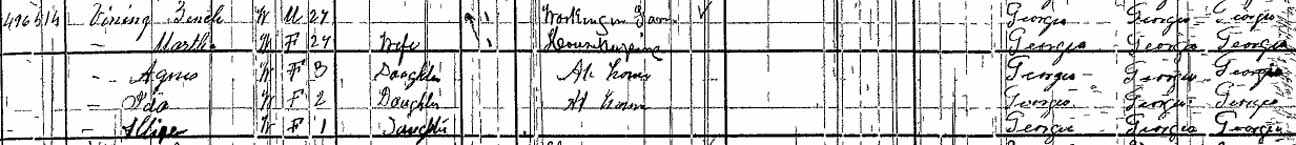 496 514 Vining W M 27 1 Working on Farm Georgia Georgia Georgia
— Martha W F 27 Wife 1 Housekeeping Georgia Georgia Georgia
— Agnes W F 3 Daughter At home Georgia Georgia Georgia
— Ida W F 2 Daughter At home Georgia Georgia Georgia
— W F 1 Daughter Georgia Georgia Georgia